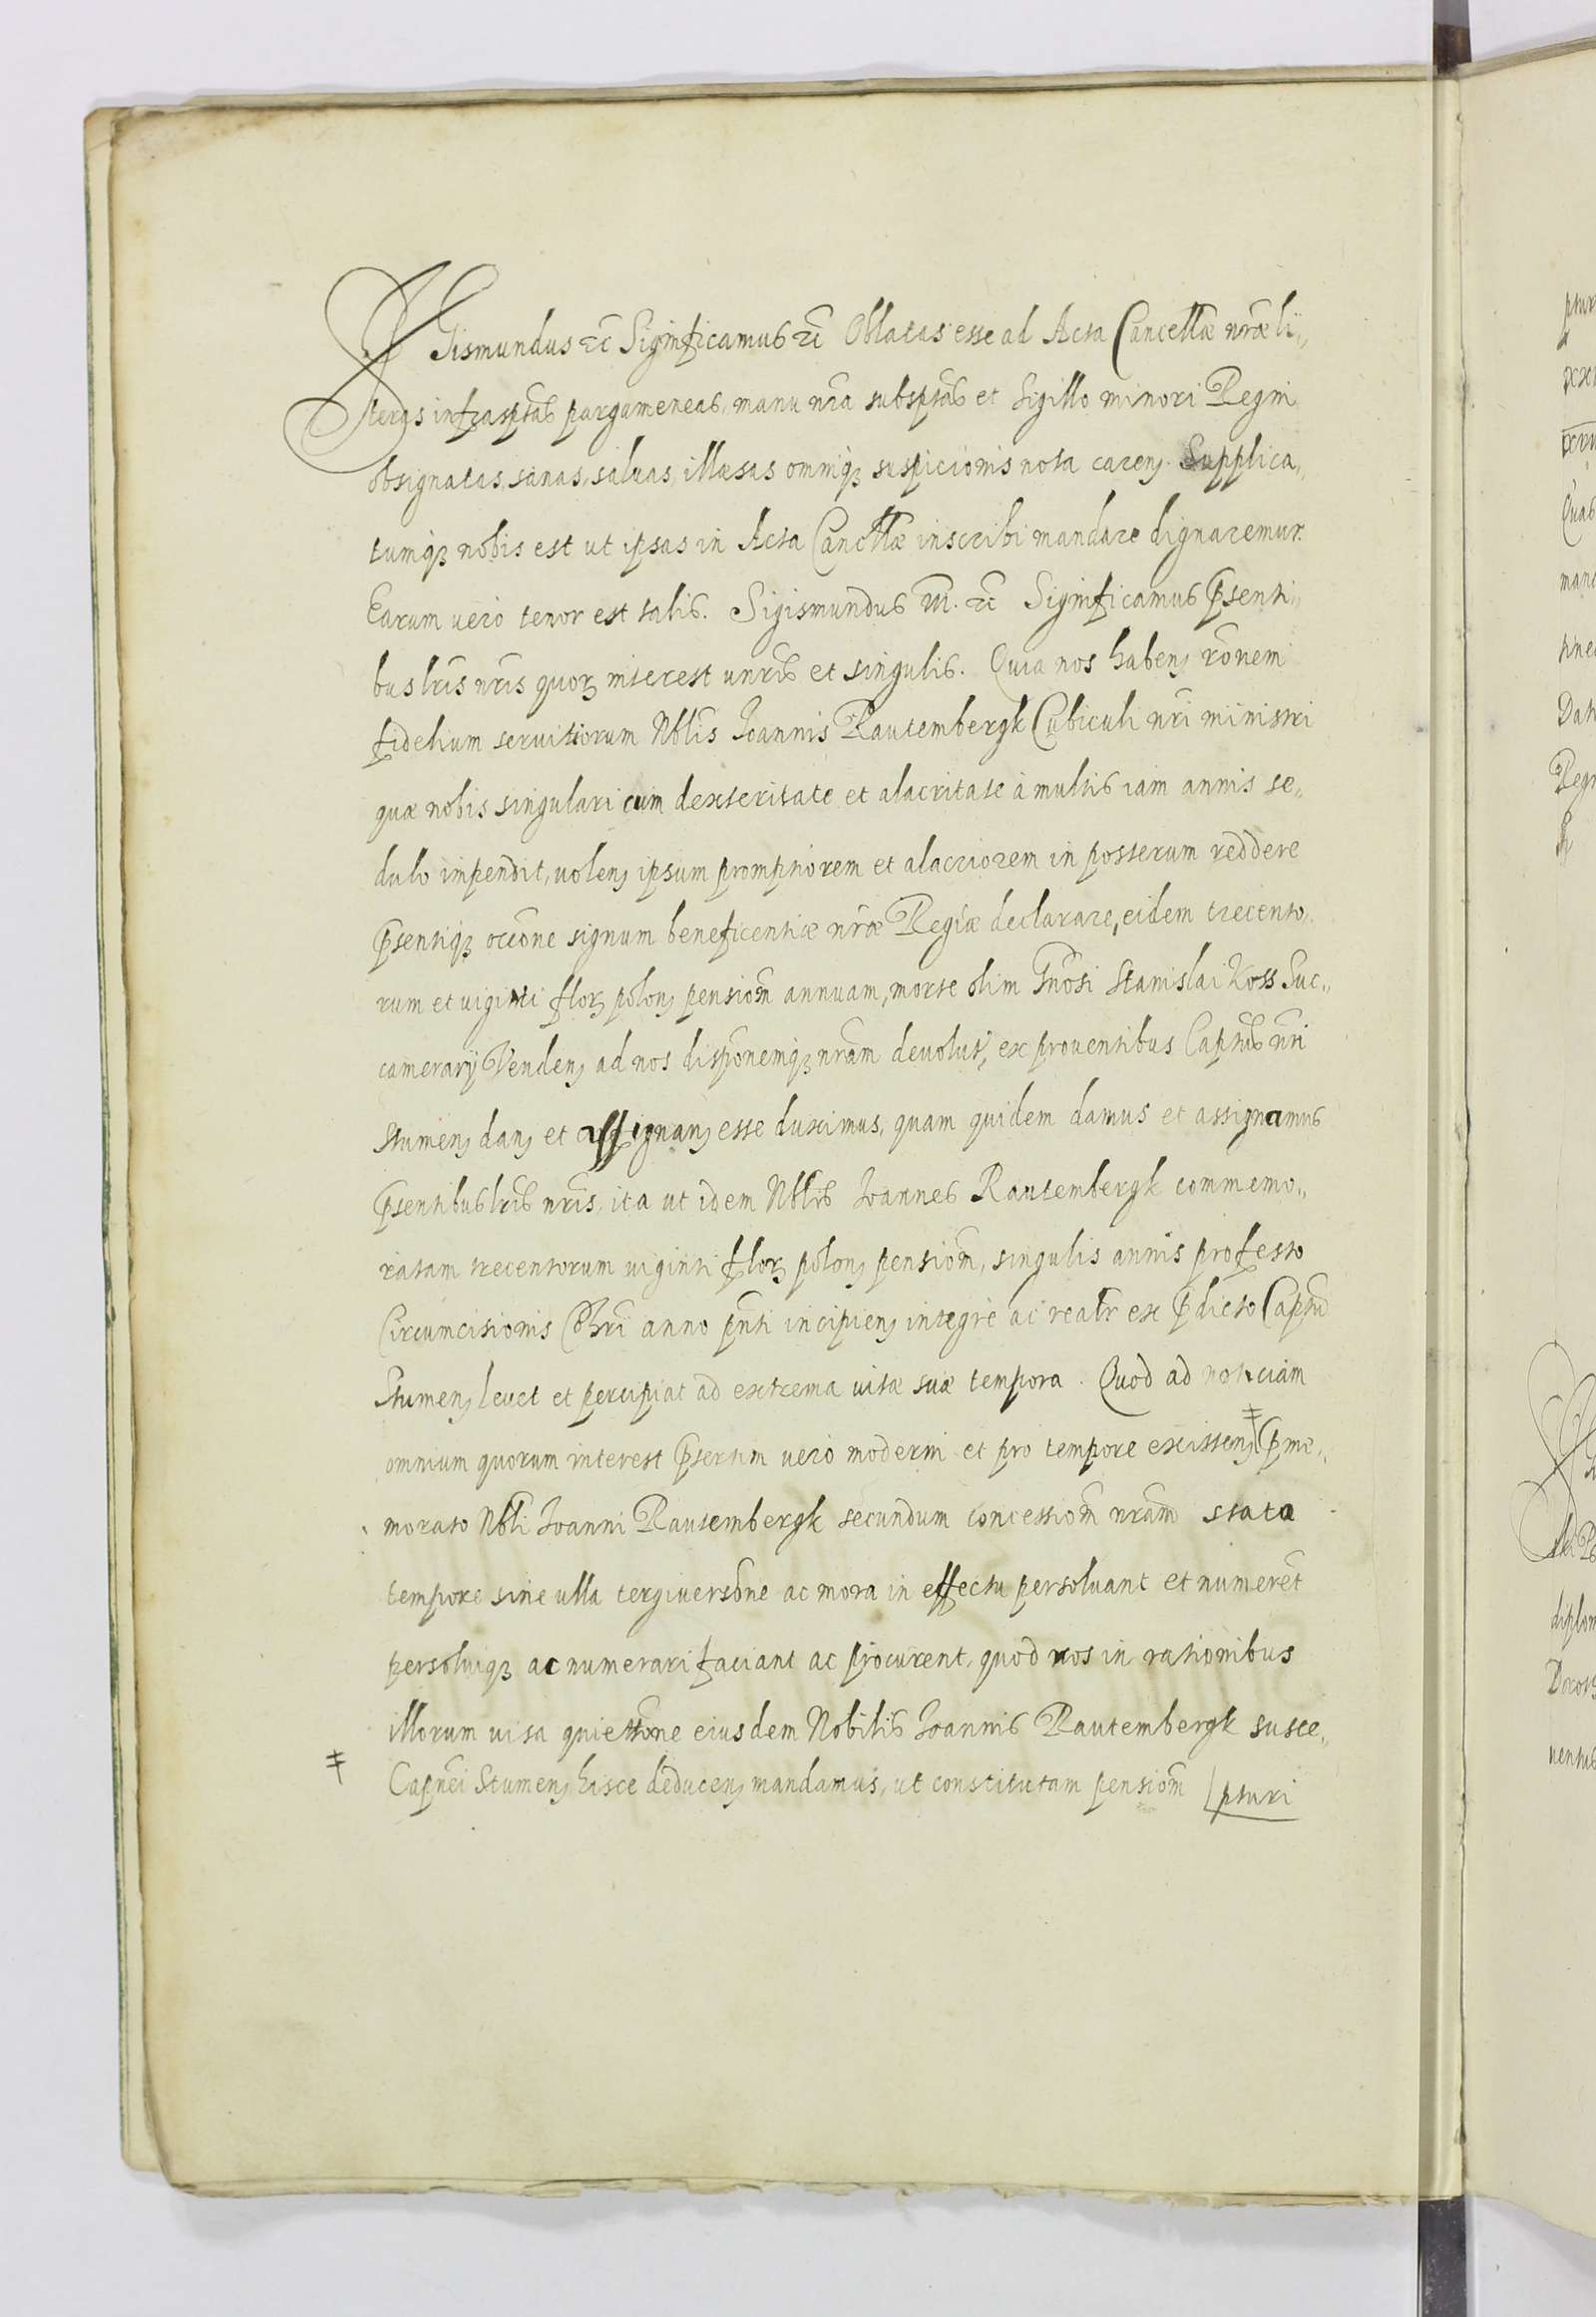 SIGismundus etc Significamus etc Oblatas esse ad Acta Cancellæ nr̃æ li„
teras infrascptas pargameneas, manu nr̃a subscptas et Sigillo minori Regni
obsignatas, sanas, saluas, illæsas omniq꜒ suspicionis nota caren. Supplica„
tumq꜒ nobis est ut ipsas in Acta Cancllæ inscribi mandare dignaremur.
Earum vero tenor est talis. Sigismundus III. etc Significamus pr̃senti„
bus lr̃is nr̃is quoꝝ interest unr̃is et singulis. Quia nos haben rõnem
fidelium seruitiorum Nblis Joannis Rautembergk Cubiculi nr̃i ministri
quæ nobis singulari cum dexteritate et alacritate à multis iam annis se„
dulo impendit, uolen ipsum promptiorem et alacriorem in posterum reddere
pr̃sentiq꜒ occõne signum beneficentiæ nr̃æ Regiæ declarare, eidem trecento„
rum et uiginti floꝝ polon pensiom̃ annuam, morte olim Gñosi Stanislai Koss Suc„
camerarij Venden ad nos dispõnemq꜒ nr̃am deuolut, ex prouentibus Captus nr̃i
Stumen dan et assignan esse duximus, quam quidem damus et assignamus
pr̃sentibus lr̃is nr̃is, ita ut idem Nblis Joannes Rautembergk commemo„
ratam trecentorum uiginti floꝝ polon pensiom̃, singulis annis pro festo
Circumcisionis Chr̃i anno pñti incipien integre ac realr ex pr̃dicto Captu
Stumen leuet et percipiat ad extrema uitæ suæ tempora. Quod ad noticiam
omnium quorum interest pr̃sertim vero moderni et pro tempore existen ‡ pr̃me„
morato Nbli Joanni Rautembergk secundum concessiom̃ nr̃am stato
tempore sine ulla tergiuersõne ac mora in effectu persoluant et numerent
persoluiq꜒ ac numerari faciant ac procurent, quod nos in rationibus
illorum uisa quietõne eiusdem Nobilis Joannis Rautembergk susce„
‡ Capnei Stumen hisce deducen mandamus, ut constitutam pensiom̃ | pturi